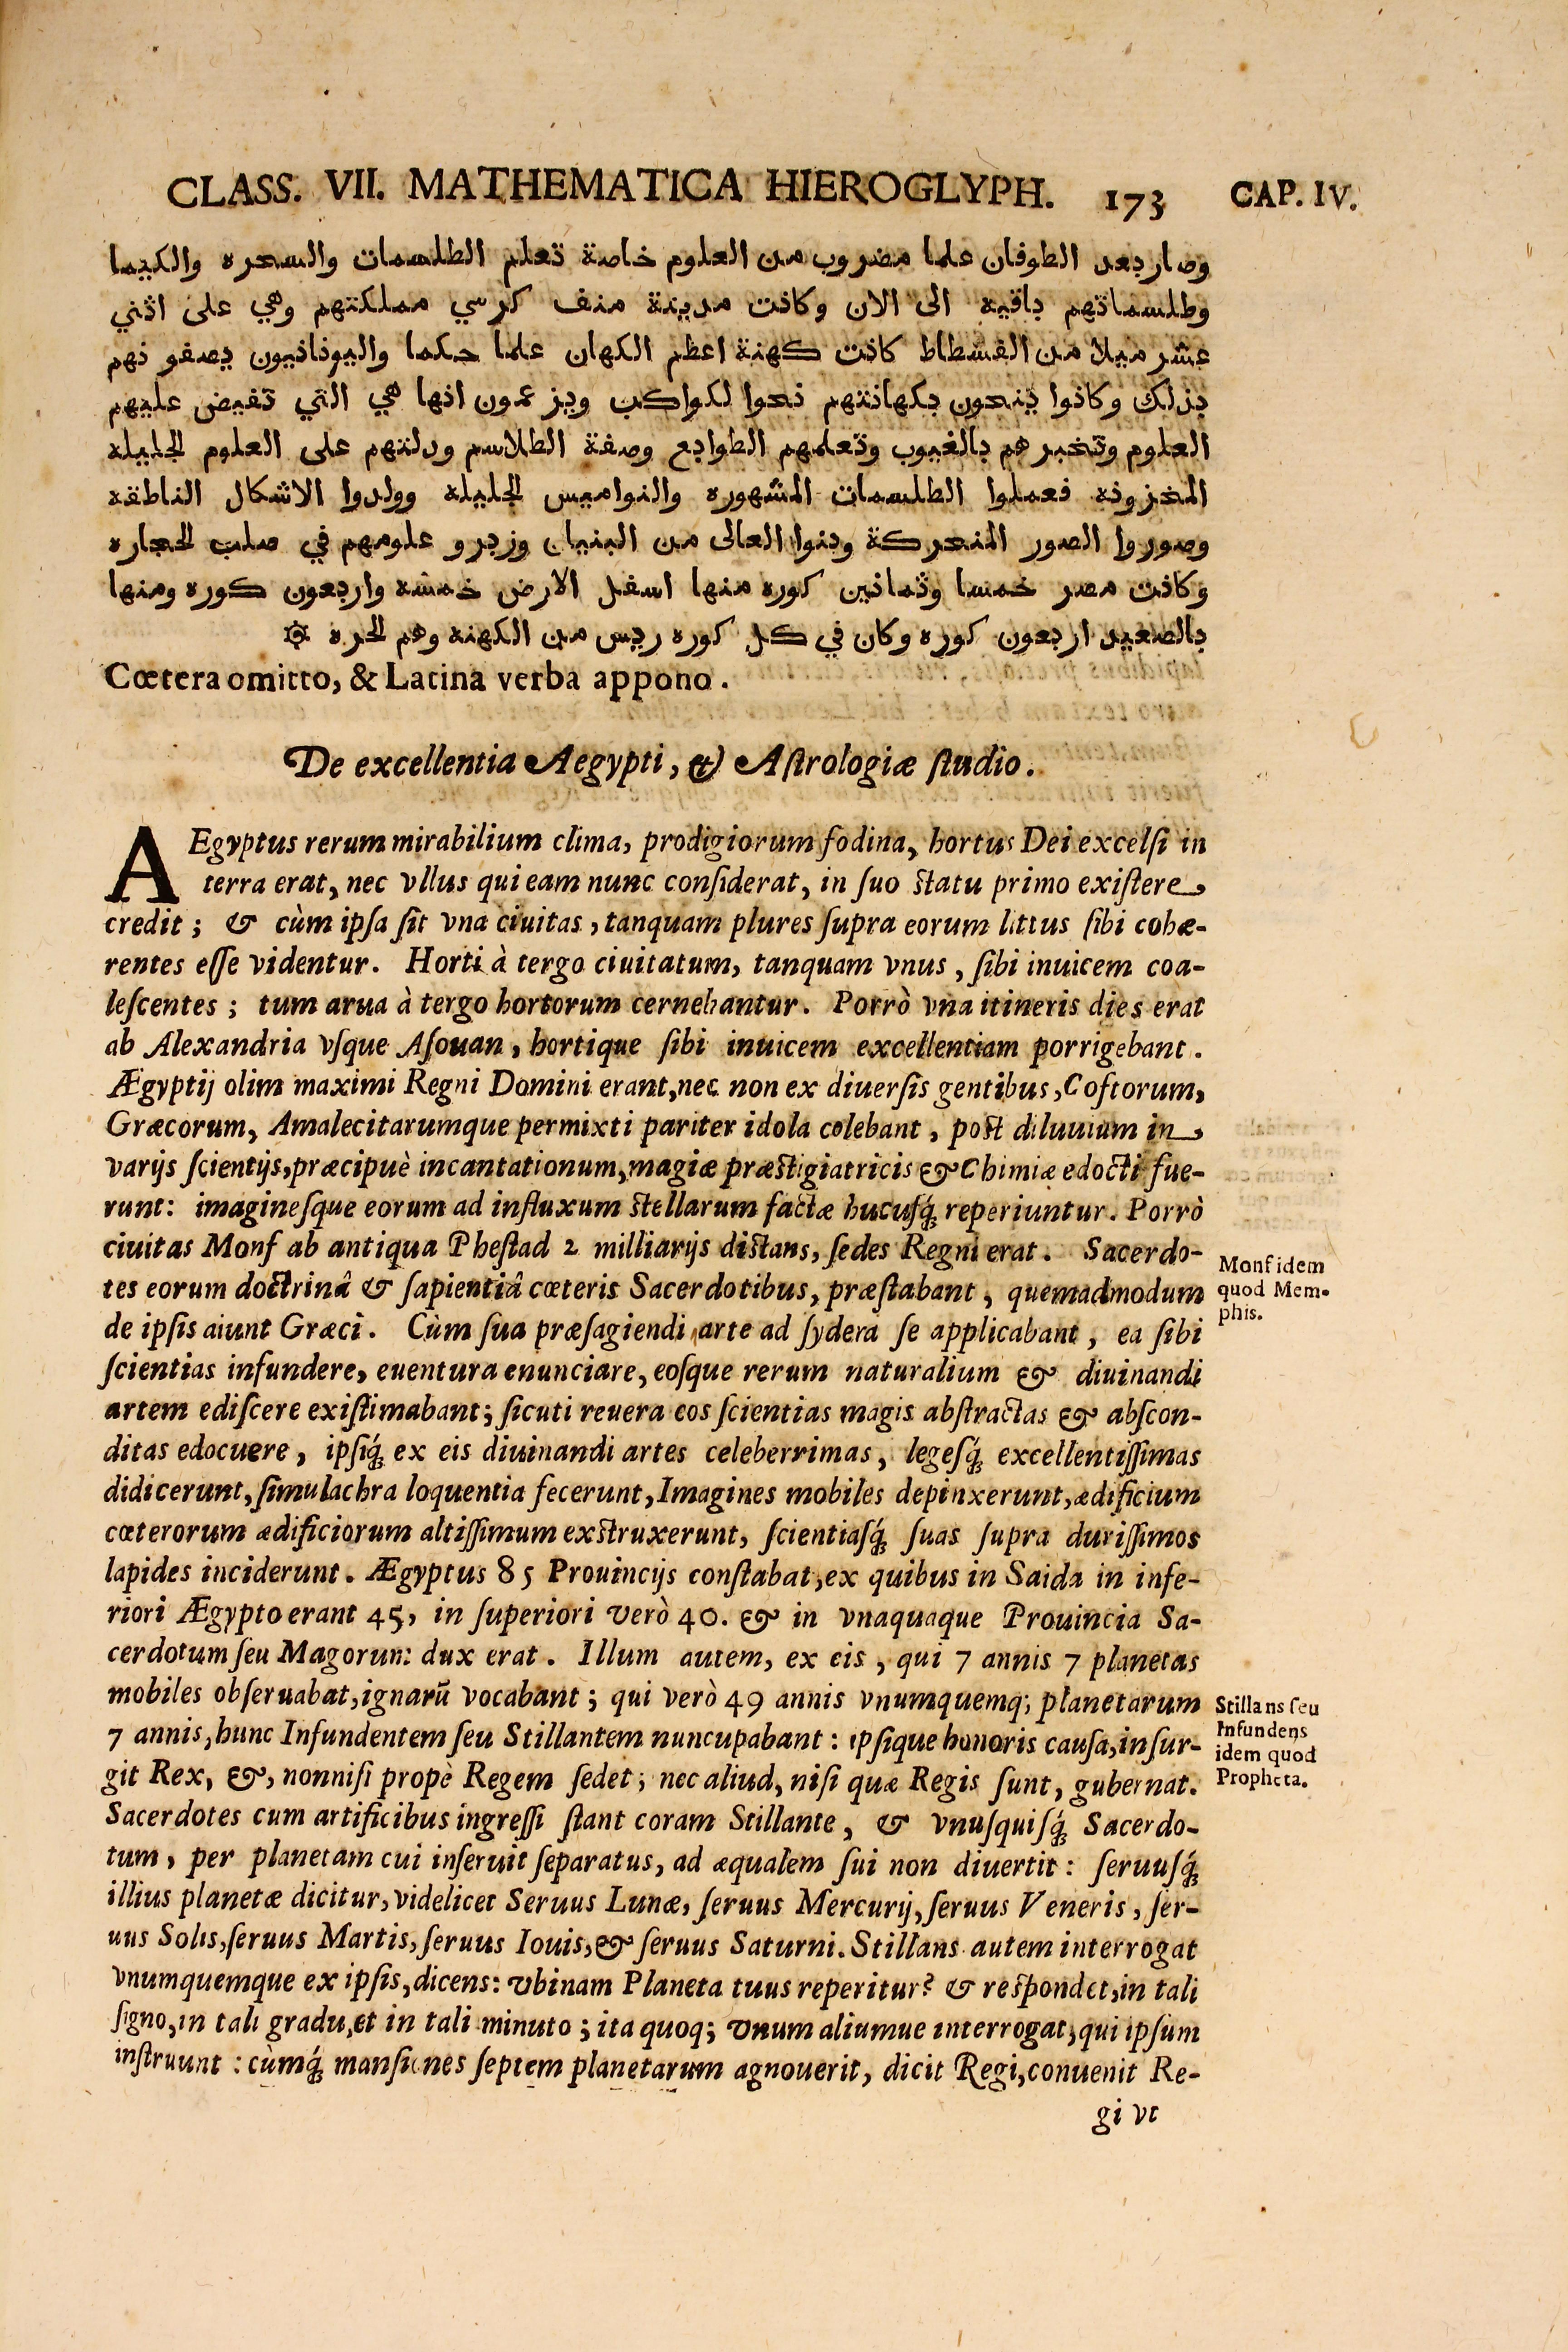 CLASS. VII. MATHEMATICA HIEROGLYPH. 173 CAP. IV.
وصار بعد الطوفان علما مضروب من العلوم خاصة تعلم الطلسمات والسحره والكيما
وطلسماتهم باقيه الى الان وكانت مدينة منف كرسي مملكتهم وهي على اثني
عشر ميلا من الفسطاط كانت كهنة اعظم الكهان علما حكما واليونانيون يصفو نهم
بذلك وكانوا ينحون بكهانتهم نحوا لكواكب ويزعمون انها هي التي تفيض عليهم
العلوم وتخبرهم بالغيوب وتعلمهم الطوابع وصفة الطلاسم ودلتهم على العلوم الجليله
المخزونه فعملوا الطلسمات المشهوره والنواميس الجليله وولدوا الاشكال الناطقه
وصوروا الصور المتحركة وبنوا العالى من البنيان وزبرو علومهم في صلب الحجاره
وكانت مصر خمسا وثمانين كوره منها اسفل الارض خمسه واربعون كوره ومنها
بالصعيد اربعون كوره وكان في كل كوره ريس من الكهنه وهم الحره ۞
Cœtera omitto, & Latina verba appono.
De excellentia Aegypti, & Aſtrologiæ ſtudio.
AEgyptus rerum mirabilium clima, prodigiorum fodina, hortus Dei excelſi in
terra erat, nec vllus qui eam nunc conſiderat, in ſuo ſtatu primo exiſtere
credit; & cùm ipſa ſit vna ciuitas, tanquam plures ſupra eorum littus ſibi cohæ-
rentes eſſe videntur. Horti à tergo ciuitatum, tanquam vnus, ſibi inuicem coa-
leſcentes; tum arua à tergo hortorum cernebantur. Porrò vna itineris dies erat
ab Alexandria vſque Aſouan, hortique ſibi inuicem excellentiam porrigebant.
Ægyptij olim maximi Regni Domini erant, nec non ex diuerſis gentibus, Coftorum,
Græcorum, Amalecitarumque permixti pariter idola colebant, poſt diluuium in
varijs ſcientijs, præcipuè incantationum, magiæ præſtigiatricis & Chimiæ edocti fue-
runt: imagineſque eorum ad influxum ſtellarum factæ hucuſq́; reperiuntur. Porrò
ciuitas Monf ab antiqua Pheſtad 2 milliarijs diſtans, ſedes Regni erat. Sacerdo-
tes eorum doctrinâ & ſapientiâ cœteris Sacerdotibus, præſtabant, quemadmodum
de ipſis aiunt Græci. Cùm ſua præſagiendi arte ad ſydera ſe applicabant, ea ſibi
ſcientias infundere, euentura enunciare, eoſque rerum naturalium & diuinandi
artem ediſcere exiſtimabant; ſicuti reuera eos ſcientias magis abſtractas & abſcon-
ditas edocuere, ipſiq́; ex eis diuinandi artes celeberrimas, legeſq́; excellentiſſimas
didicerunt, ſimulachra loquentia fecerunt, Imagines mobiles depinxerunt, ædificium
cœterorum ædificiorum altiſſimum exſtruxerunt, ſcientiaſq́; ſuas ſupra duriſſimos
lapides inciderunt. Ægyptus 85 Prouincijs conſtabat, ex quibus in Saida in infe-
riori Ægypto erant 45, in ſuperiori verò 40. & in vnaquaque Prouincia Sa-
cerdotum ſeu Magorum dux erat. Illum autem, ex eis, qui 7 annis 7 planetas
mobiles obſeruabat, ignarũ vocabant; qui verò 49 annis vnumquemq; planetarum
7 annis, hunc Infundentem ſeu Stillantem nuncupabant: ipſique honoris cauſa, inſur-
git Rex, &, nonniſi propè Regem ſedet; nec aliud, niſi quæ Regis ſunt, gubernat.
Sacerdotes cum artificibus ingreſſi ſtant coram Stillante, & vnuſquiſq́; Sacerdo-
tum, per planetam cui inſeruit ſeparatus, ad æqualem ſui non diuertit: ſeruuſq́;
illius planetæ dicitur, videlicet Seruus Lunæ, ſeruus Mercurij, ſeruus Veneris, ſer-
uus Solis, ſeruus Martis, ſeruus Iouis, & ſeruus Saturni. Stillans autem interrogat
vnumquemque ex ipſis, dicens: vbinam Planeta tuus reperitur? & reſpondet, in tali
ſigno, in tali gradu, et in tali minuto; ita quoq; vnum aliumue interrogat, qui ipſum
inſtruunt: cùmq́; manſiones ſeptem planetarum agnouerit, dicit Regi, conuenit Re-
gi vt
Monf idem
quod Mem-
phis.
Stillans ſeu
Infundens
idem quod
Propheta.